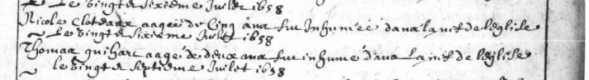 Le vingt & sixiesme Juillet 1658
Nicole Cloteaux aagée de Cinq ans fut Inhumée dans la nef de leglise
~ Le vingt & sixieme Juillet 1658
Thomas guihart aage de deux ans fut inhume dans la nef de leglise
~ le vingt & septieme Juillet 1658